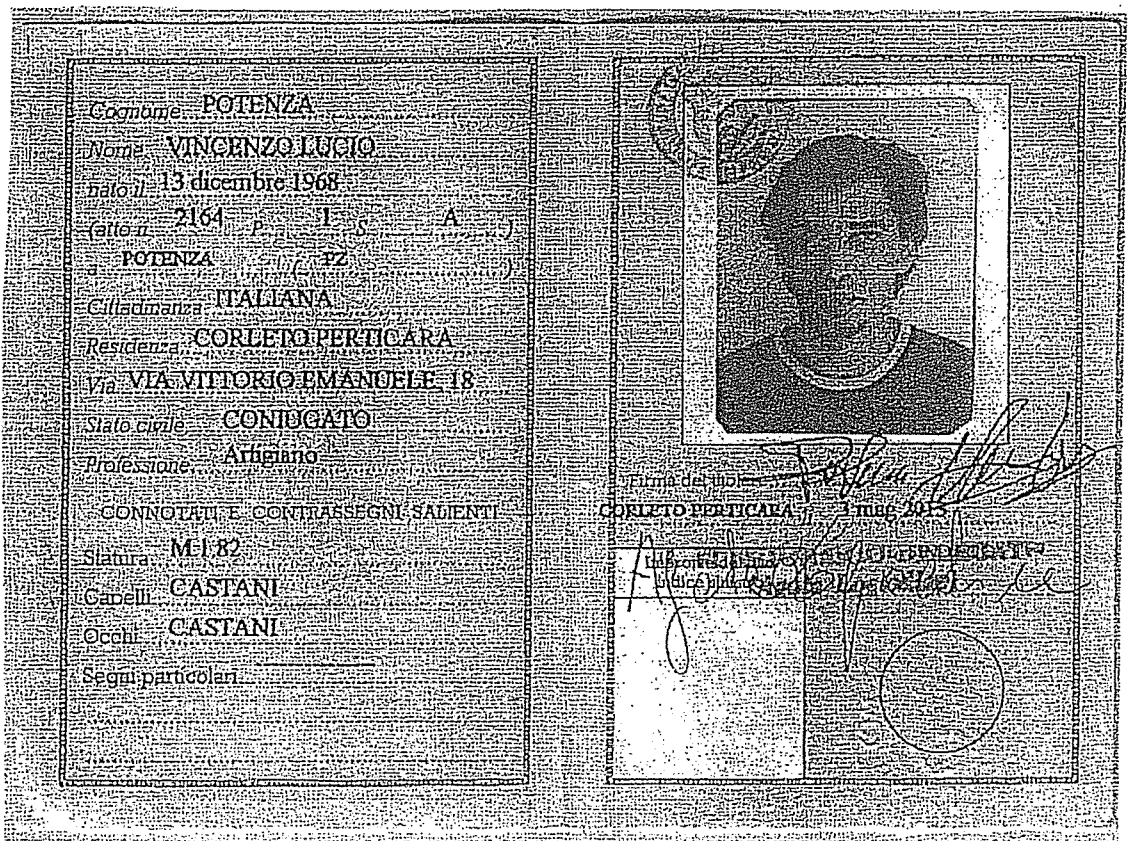 Cognome POTENZA
Nome VINCENZO LUCIO
nato il 13 dicembre 1968
(atto n. 2164 P. 1 S. A )
a POTENZA ( PZ )
Cittadinanza ITALIANA
Residenza CORLETO PERTICARA
Via VIA VITTORIO EMANUELE 18
Stato civile CONIUGATO
Professione Artigiano
CONNOTATI E CONTRASSEGNI SALIENTI
Statura M 1.82
Capelli CASTANI
Occhi CASTANI
Segni particolari
Firma del titolare
CORLETO PERTICARA li 3 mag 2013
Impronta del dito
indice sinistro